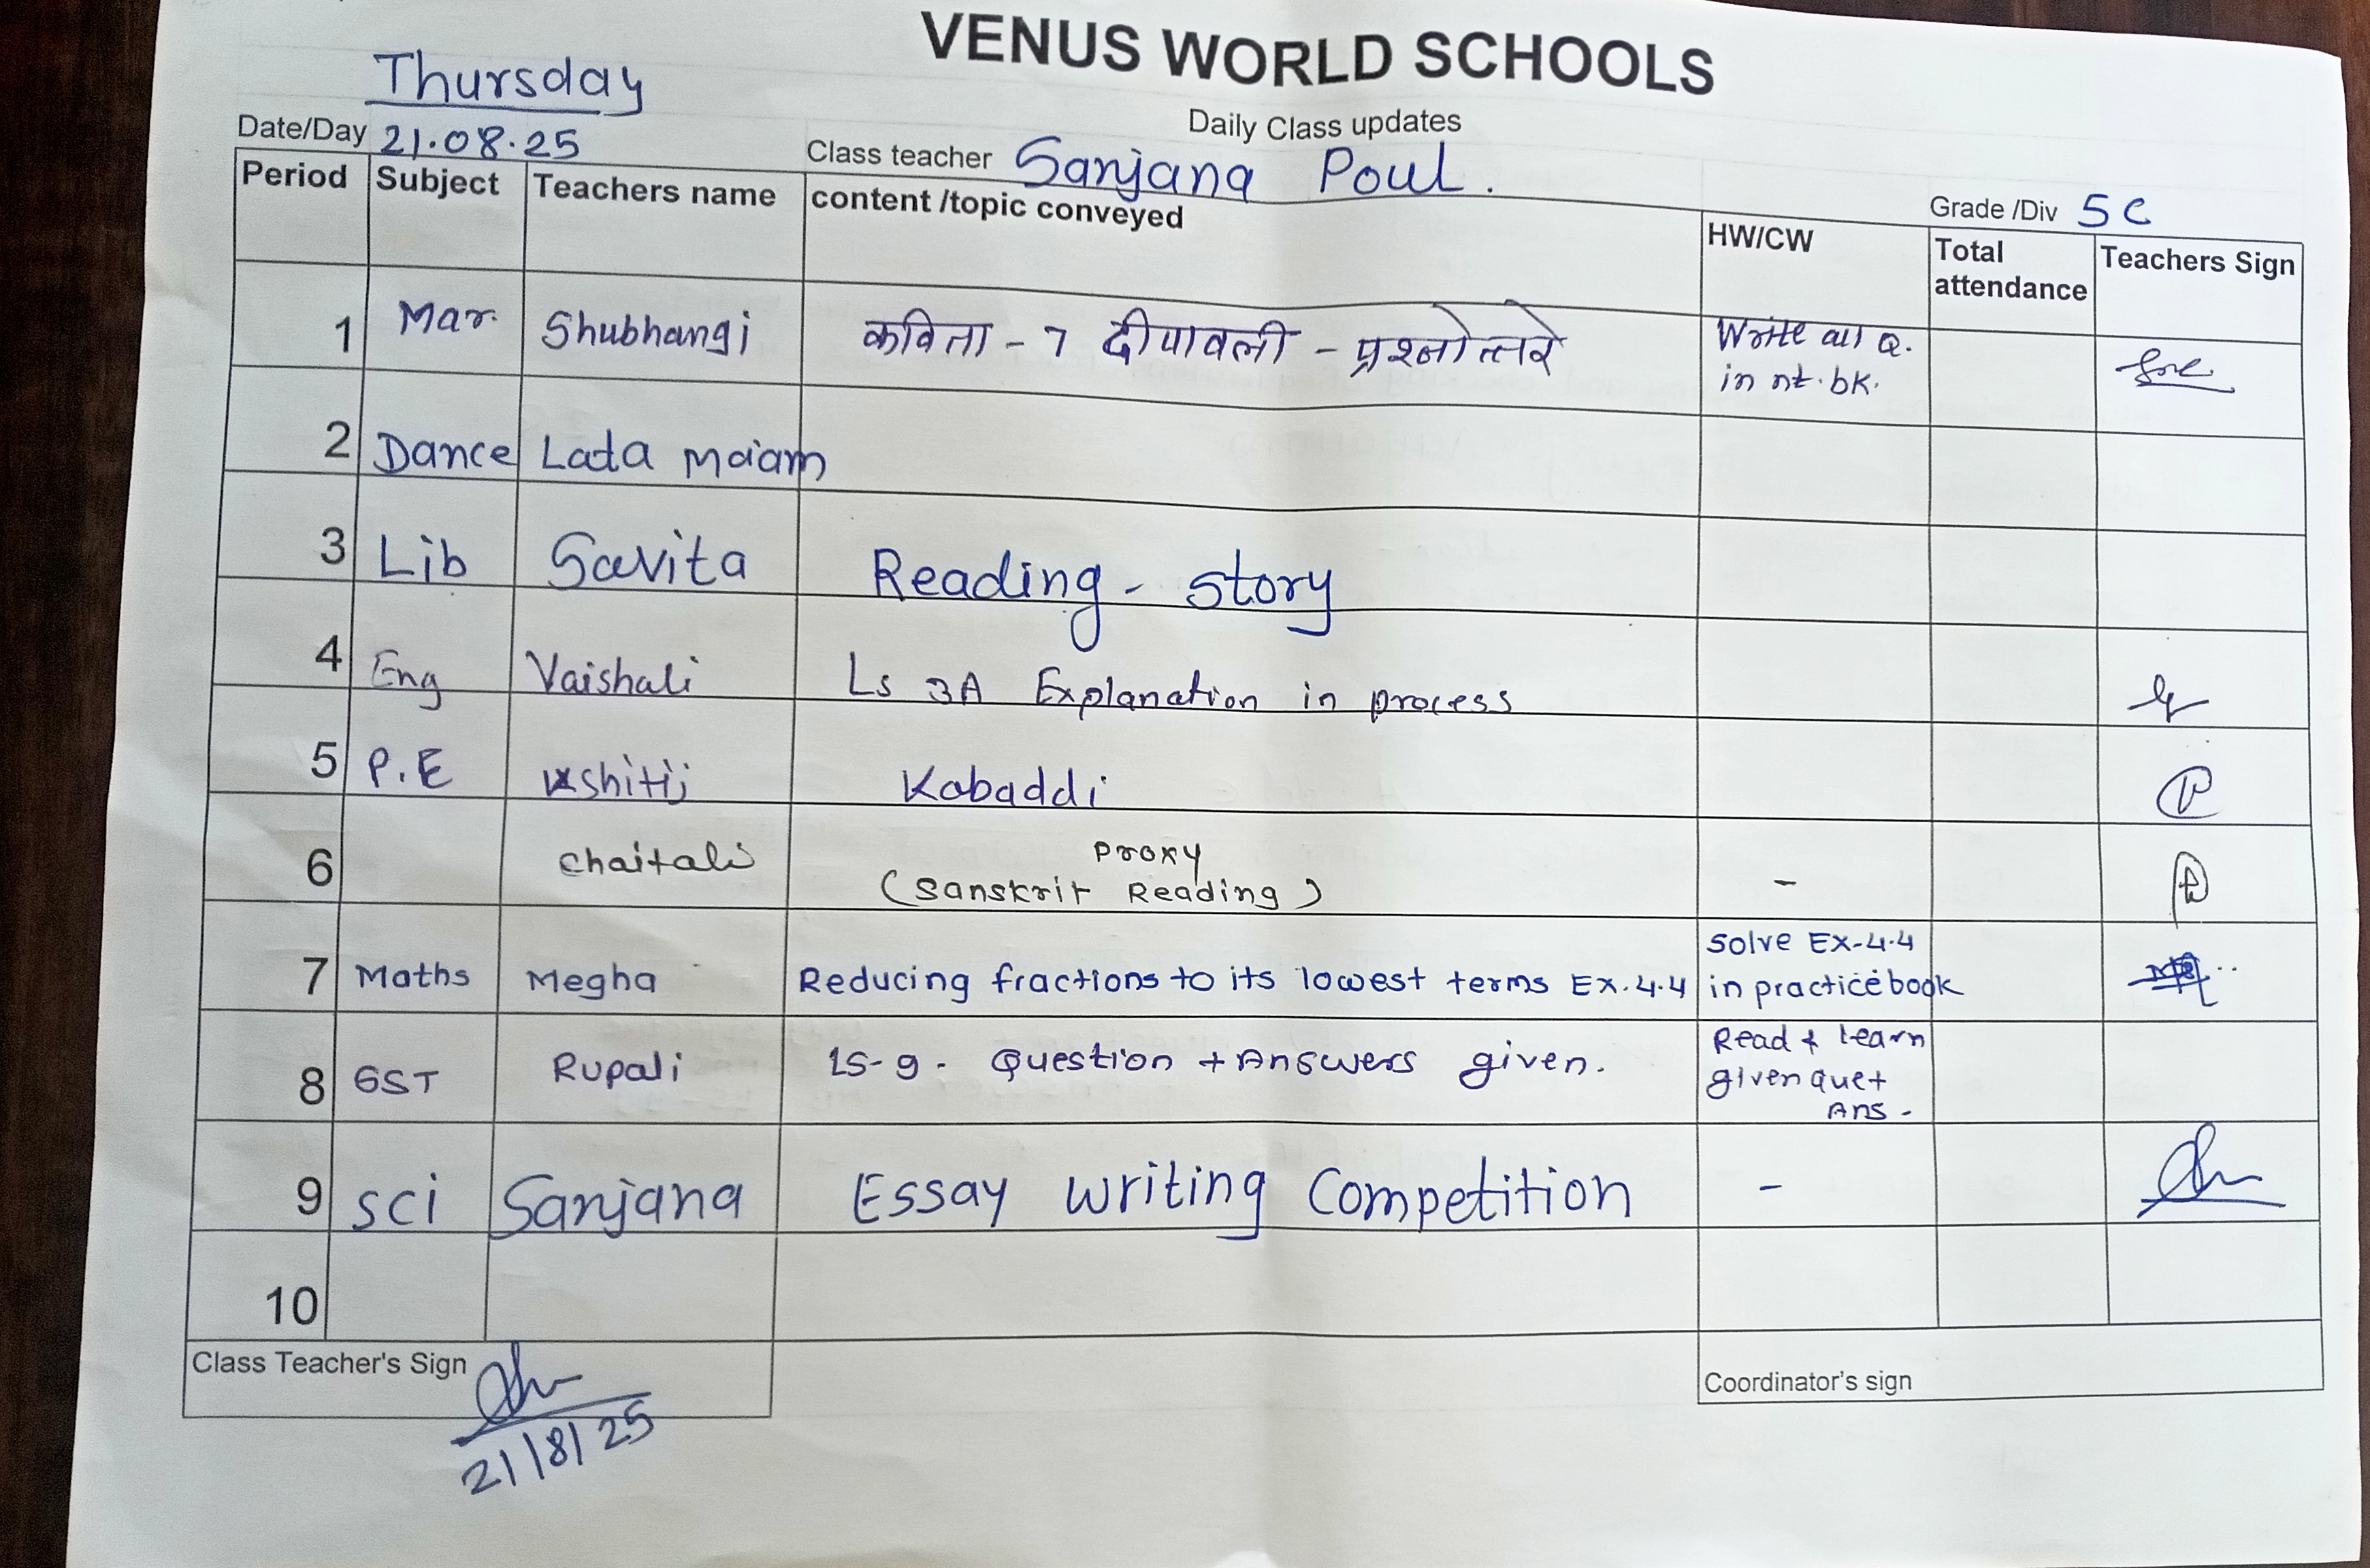 VENUS WORLD SCHOOLS
Daily Class updates
Thursday
Date/Day 21.08.25
Class teacher Sanjana Poul.
Grade /Div 5C
Period Subject Teachers name content /topic conveyed HW/CW Total attendance Teachers Sign
1 Mar. Shubhangi कविता - 7 दीपावली - प्रश्नोत्तरे Write all Q. in nt. bk.
2 Dance Lata ma'am
3 Lib Savita Reading - story
4 Eng Vaishali Ls 3A Explanation in process
5 P.E Kshitij Kabaddi
6 Chaitali Proxy (Sanskrit Reading) -
7 Maths Megha Reducing fractions to its lowest terms Ex.4.4 Solve Ex-4.4 in practice book
8 SST Rupali LS-9. Question + Answers given. Read & learn given que + Ans -
9 Sci Sanjana Essay writing Competition -
10
Class Teacher's Sign
21/8/25
Coordinator's sign